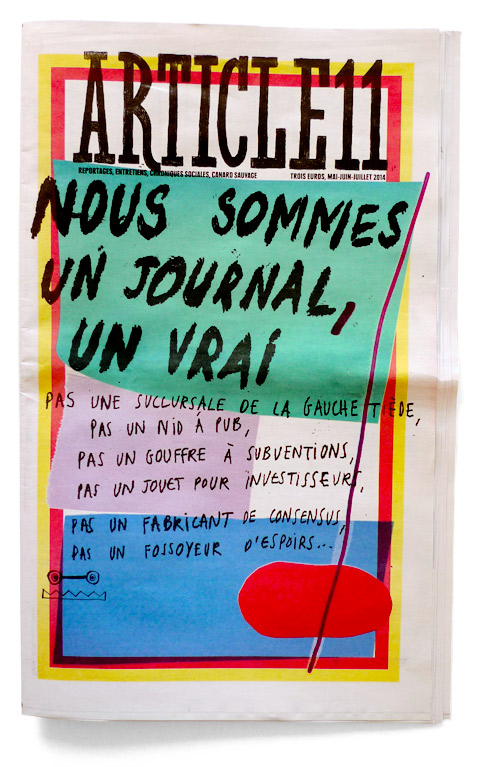 ARTICLE11
REPORTAGES, ENTRETIENS, CHRONIQUES SOCIALES, CANARD SAUVAGE TROIS EUROS, MAI-JUIN-JUILLET 2014
NOUS SOMMES
UN JOURNAL,
UN VRAI
PAS UNE SUCCURSALE DE LA GAUCHE TIÈDE,
PAS UN NID À PUB,
PAS UN GOUFFRE À SUBVENTIONS,
PAS UN JOUET POUR INVESTISSEURS,
PAS UN FABRICANT DE CONSENSUS,
PAS UN FOSSOYEUR D'ESPOIRS...